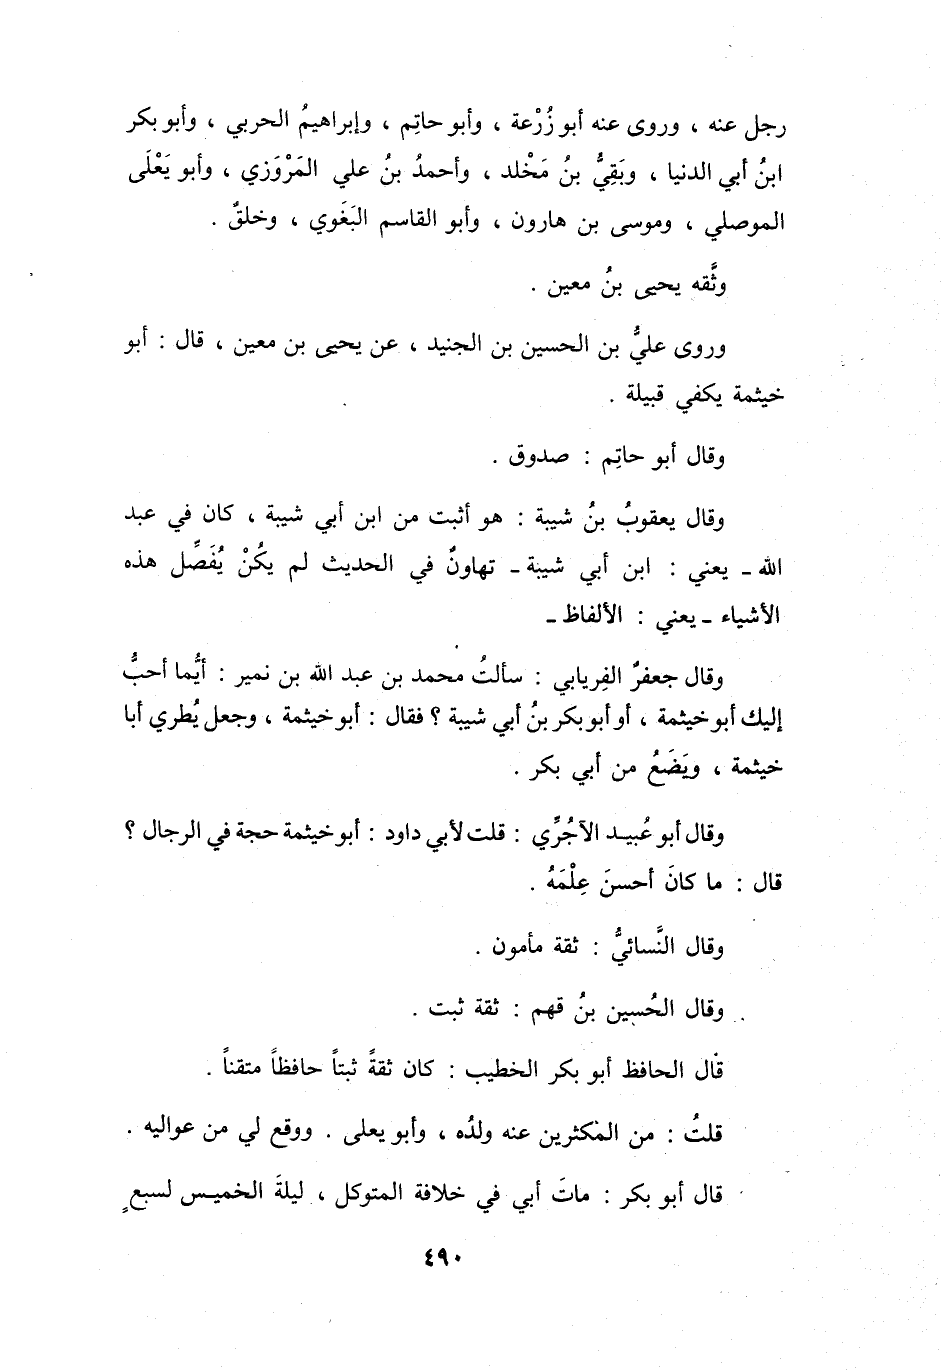 رجل عنه ، وروى عنه أبو زُرْعة ، وأبو حاتِم ، وإبراهيمُ الحربي ، وأبو بكر
ابنُ أبي الدنيا ، وبَقِيُّ بنُ مَخْلد ، وأحمدُ بنُ علي المَرْوَزي ، وأبو يَعْلَى
الموصلي ، وموسى بن هارون ، وأبو القاسم البَغَوي ، وخلقٌ .
وثَّقه يحيى بنُ معين .
وروى عليُّ بن الحسين بن الجنيد ، عن يحيى بن معين ، قال : أبو
خيثمة يكفي قبيلة .
وقال أبو حاتِم : صدوق .
وقال يعقوبُ بنُ شيبة : هو أثبت من ابن أبي شيبة ، كان في عبد
الله ـ يعني : ابن أبي شيبة ـ تهاونٌ في الحديث لم يكُنْ يُفَصِّل هذه
الأشياء ـ يعني : الألفاظ ـ
وقال جعفرٌ الفِريابي : سألتُ محمد بن عبد الله بن نمير : أيُّما أحبُّ
إليك أبو خيثمة ، أو أبو بكر بنُ أبي شيبة ؟ فقال : أبو خيثمة ، وجعل يُطري أبا
خيثمة ، ويَضَعُ من أبي بكر .
وقال أبو عُبيد الآجُرِّي : قلت لأبي داود : أبو خيثمة حجة في الرجال ؟
قال : ما كانَ أحسنَ عِلْمَهُ .
وقال النَّسائيُّ : ثقة مأمون .
وقال الحُسين بنُ فهم : ثقة ثبت .
قال الحافظ أبو بكر الخطيب : كان ثقةً ثبتاً حافظاً متقناً .
قلتُ : من المكثرين عنه ولدُه ، وأبو يعلى . ووقع لي من عواليه .
قال أبو بكر : ماتَ أبي في خلافة المتوكل ، ليلةَ الخميس لسبعٍ
٤٩٠